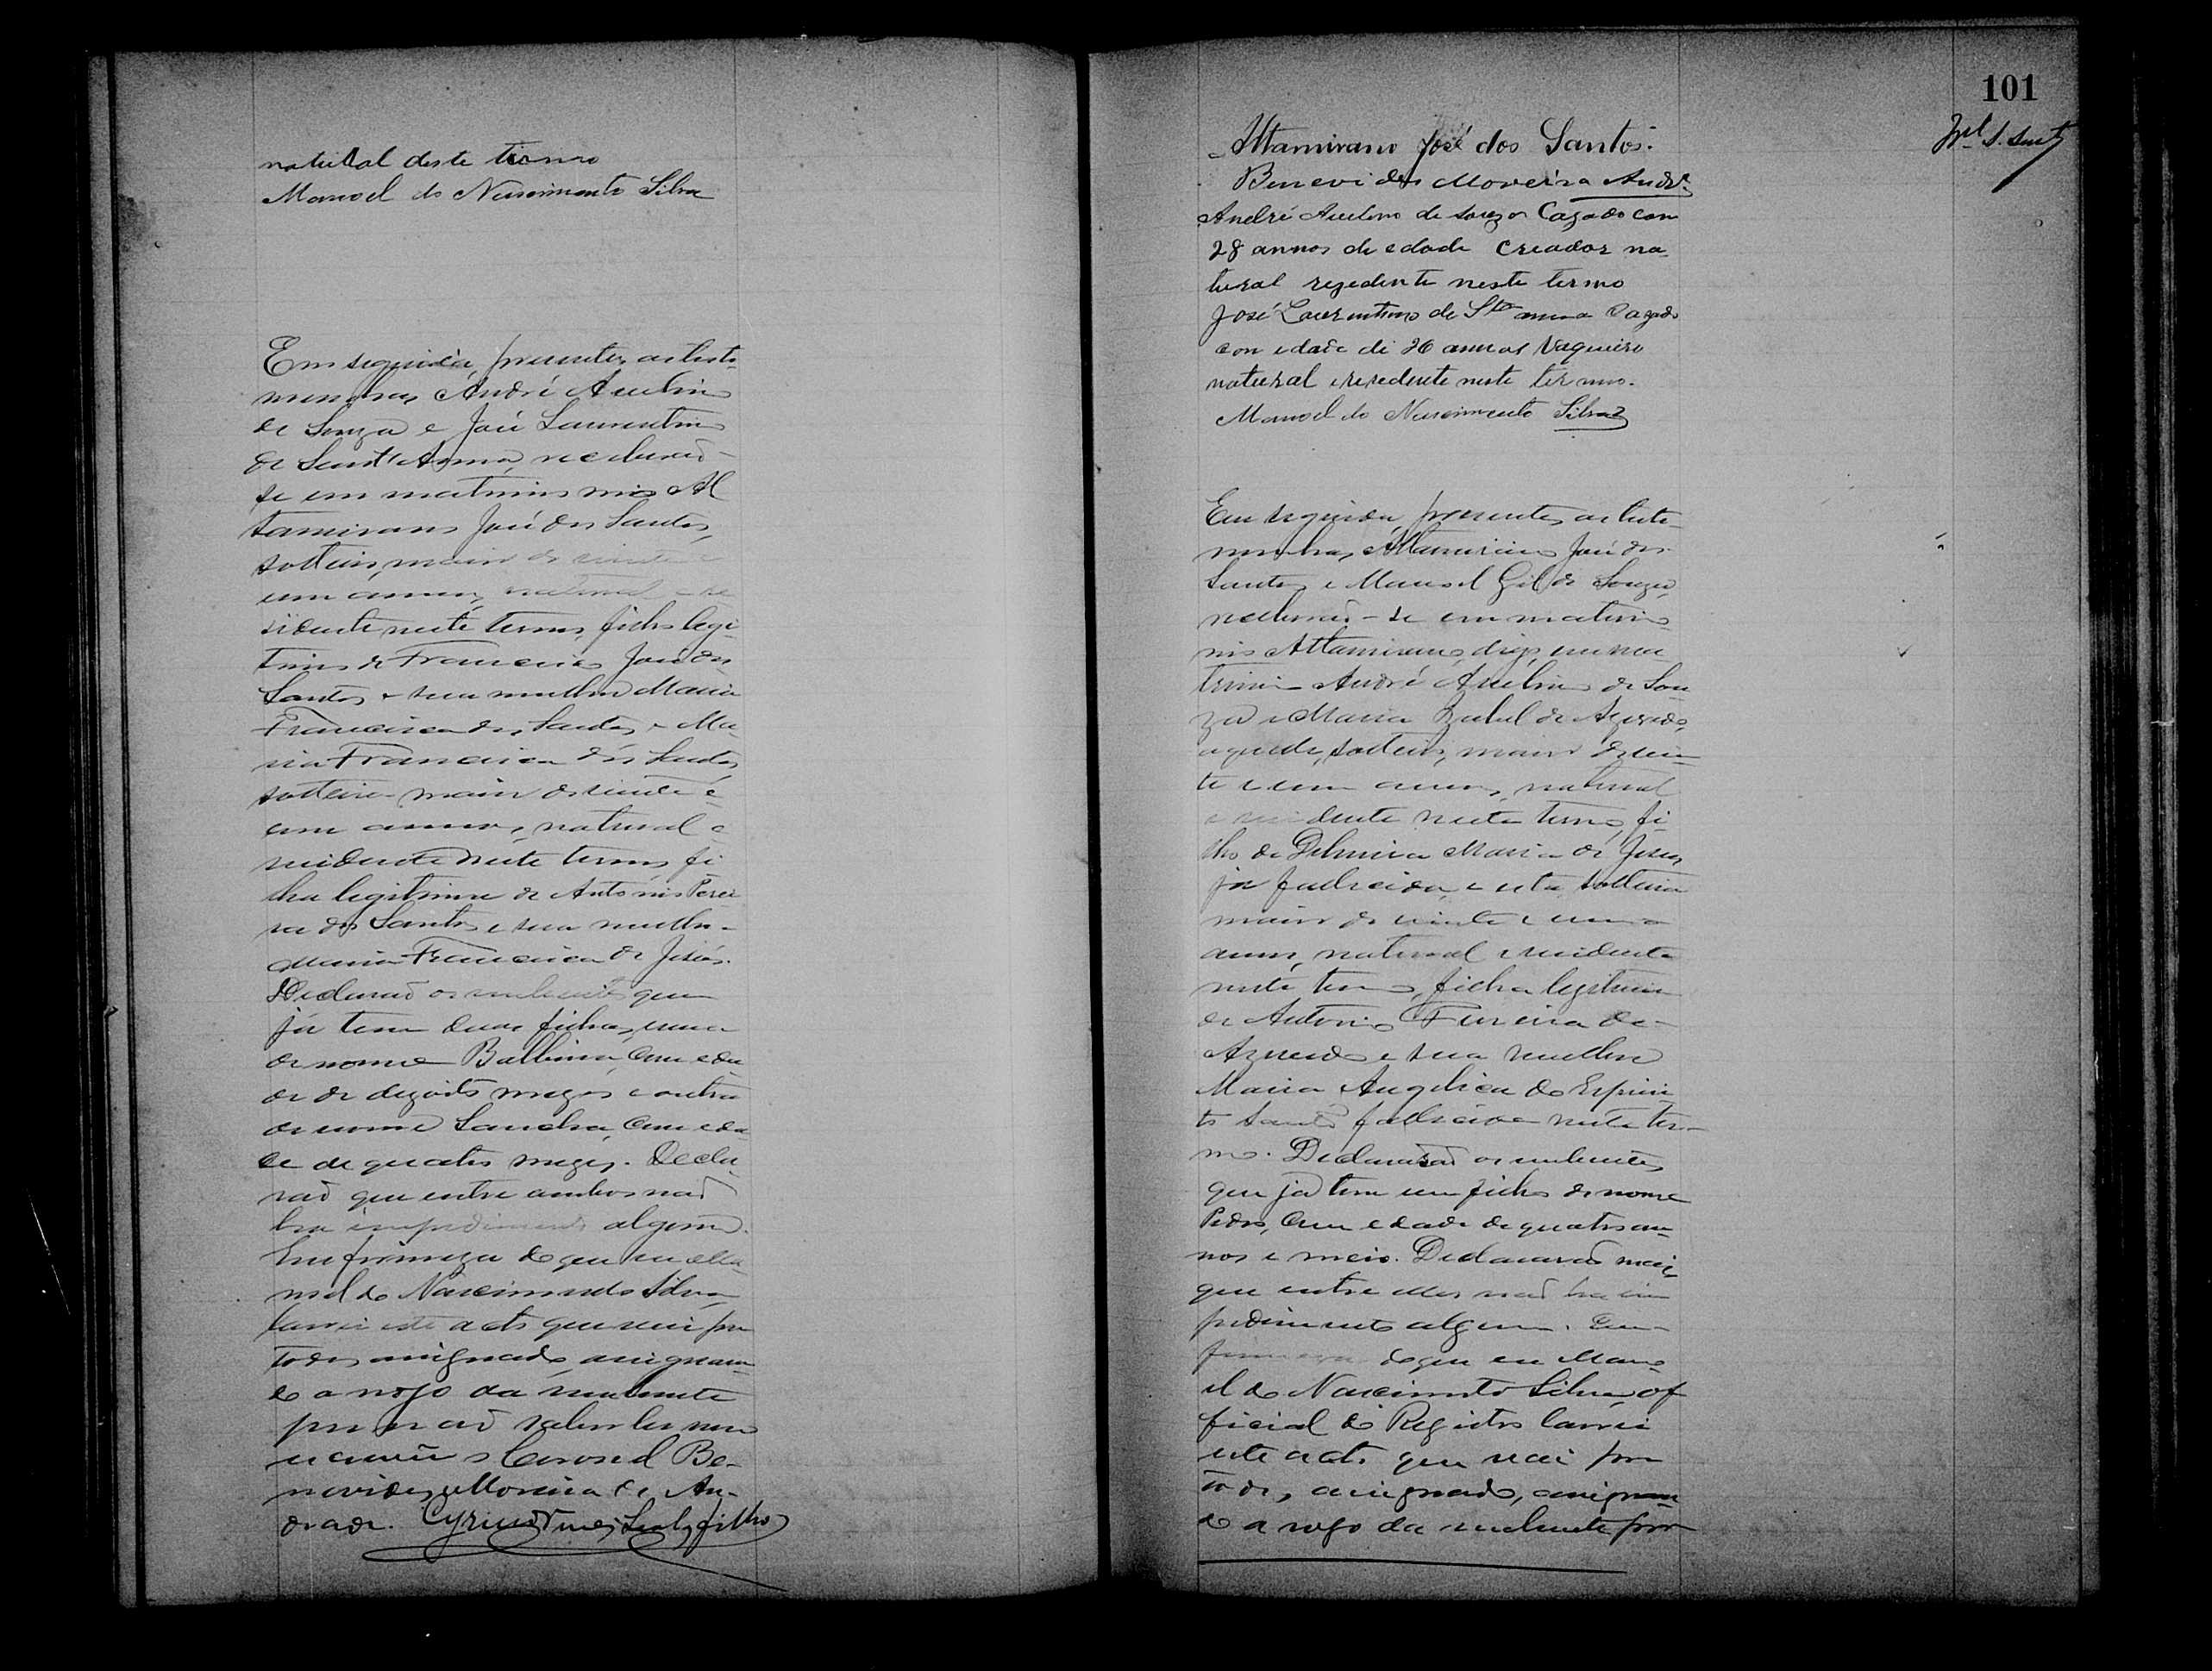 natural deste termo
Manoel do Nascimento Silva
Em seguida, presentes as teste-
munhas, André Avelino
de Souza e José Laurentino
de Sant'Anna, receberaõ-
se em matrimonio Al
tamirano José dos Santos,
solteiro, maior de vinte e
um annos, natural e re
sidente neste termo, filho legi-
timo de Francisco José dos
Santos e sua mulher Maria
Francisca dos Santos e Ma-
ria Francisca dos Santos
solteira maior de vinte e
um annos, natural e
residente neste termo, fi
lha legitima de Antonio Perei
ra dos Santos e sua mulher
Maria Francisca de Jesus.
Declaraõ os nubentes que
já tem duas filhas, uma
de nome Balbina, com eda
de de dezoito mezes e outra
de nome Sancha, com eda-
de de quatro mezes. Decla-
raõ que entre ambos naõ
ha impedimento algum.
Em firmeza do que eu Ma-
noel do Nascimento Silva
lavrei este acto que vai por
todos assignado, assignan-
do a rogo da nubente
por naõ saber ler nem
escrever o Coronel Be-
nevides Moreira de An-
drade.
101
Altamirano José dos Santos.
Benevides Moreira Andre
André Avelino de Souza Cazado com
28 annos de edade Creador na
tural rezedente neste termo
José Laurentino de Sta anna Cazado
con edade di 26 annos Vaqueiro
natural e resedente neste termo.
Manoel do Nascimento Silva
Em seguida, presentes as teste-
munhas, Altamirano José dos
Santos e Manoel Gil de Souza,
receberaõ-se em matrimo-
nio Altamirano, digo, em ma-
trimonio André Avelino de Sou
za e Maria Izabel de Azevedo,
aquelle, solteiro, maior de vin-
te e um annos, natural
e residente neste termo, fi-
lho de Delmira Maria de Jesus,
já fallecida, e esta solteira
maior de vinte e um
annos, natural e residente
neste termo, filha legitima
de Antonio Ferreira de
Azevedo e sua mulher
Maria Angelica do Espiri-
to Santo fallecida neste ter-
mo. Declararaõ os nubentes
que já tem um filho de nome
Pedro, com edade de quatro an-
nos e meio. Declararaõ mais
que entre elles naõ ha im
pedimento algum. Em
firmeza do que eu Mano
el do Nascimento Silva of
ficial do Registro lavrei
este acto que vai por
todos, assignado, assignan-
do a rogo da nubente por